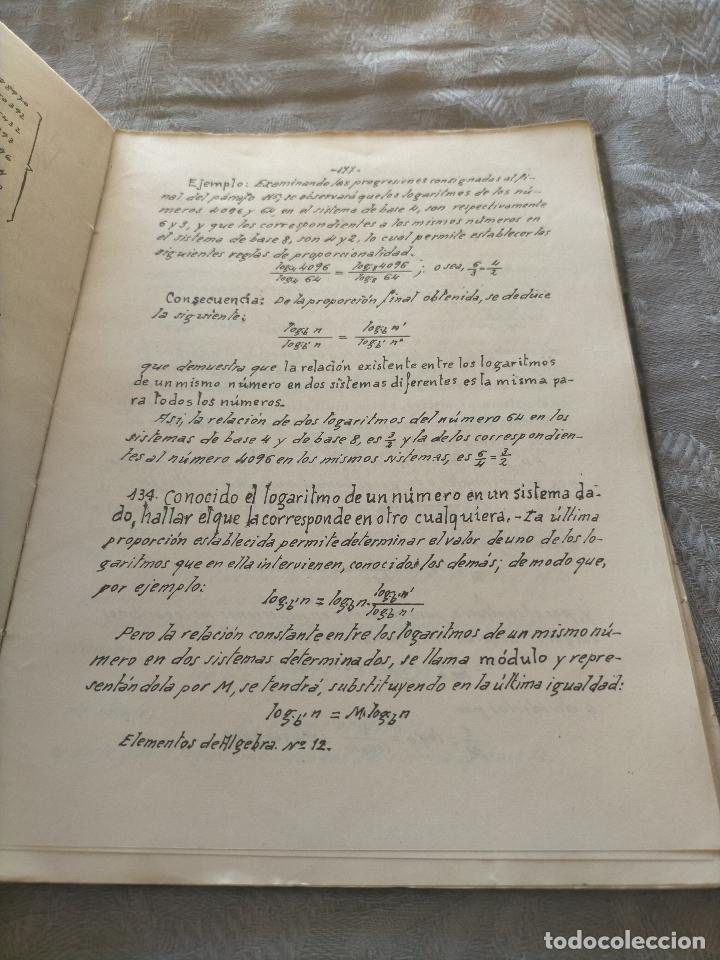 -177-
Ejemplo: Examinando las progresiones consignadas al fi-
nal del párrafo 115, se observará que los logaritmos de los nú-
meros 4096 y 64, en el sistema de base 4, son respectivamente
6 y 3, y que los correspondientes a los mismos números en
el sistema de base 8, son 4 y 2, lo cual permite establecer las
siguientes reglas de proporcionalidad.
log.₄ 4096 / log.₄ 64 = log.₈ 4096 / log.₈ 64 ; o sea, 6/3 = 4/2
Consecuencia: De la proporción final obtenida, se deduce
la siguiente:
log.b n / log.b' n = log.b n' / log.b' n'
que demuestra que la relación existente entre los logaritmos
de un mismo número en dos sistemas diferentes es la misma pa-
ra todos los números.
Asi, la relación de dos logaritmos del número 64 en los
sistemas de base 4 y de base 8, es 3/2 y la de los correspondien-
tes al número 4096 en los mismos sistemas, es 6/4 = 3/2
134. Conocido el logaritmo de un número en un sistema da-
do, hallar el que la corresponde en otro cualquiera. - La última
proporción establecida permite determinar el valor de uno de los lo-
garitmos que en ella intervienen, conocidos los demás; de modo que,
por ejemplo:
log.b' n = log.b n · log.b' n' / log.b n'
Pero la relación constante entre los logaritmos de un mismo nú-
mero en dos sistemas determinados, se llama módulo y repre-
sentándola por M, se tendrá, substituyendo en la última igualdad:
log.b' n = M·log.b n
Elementos de Algebra. Nº 12.
todocoleccion